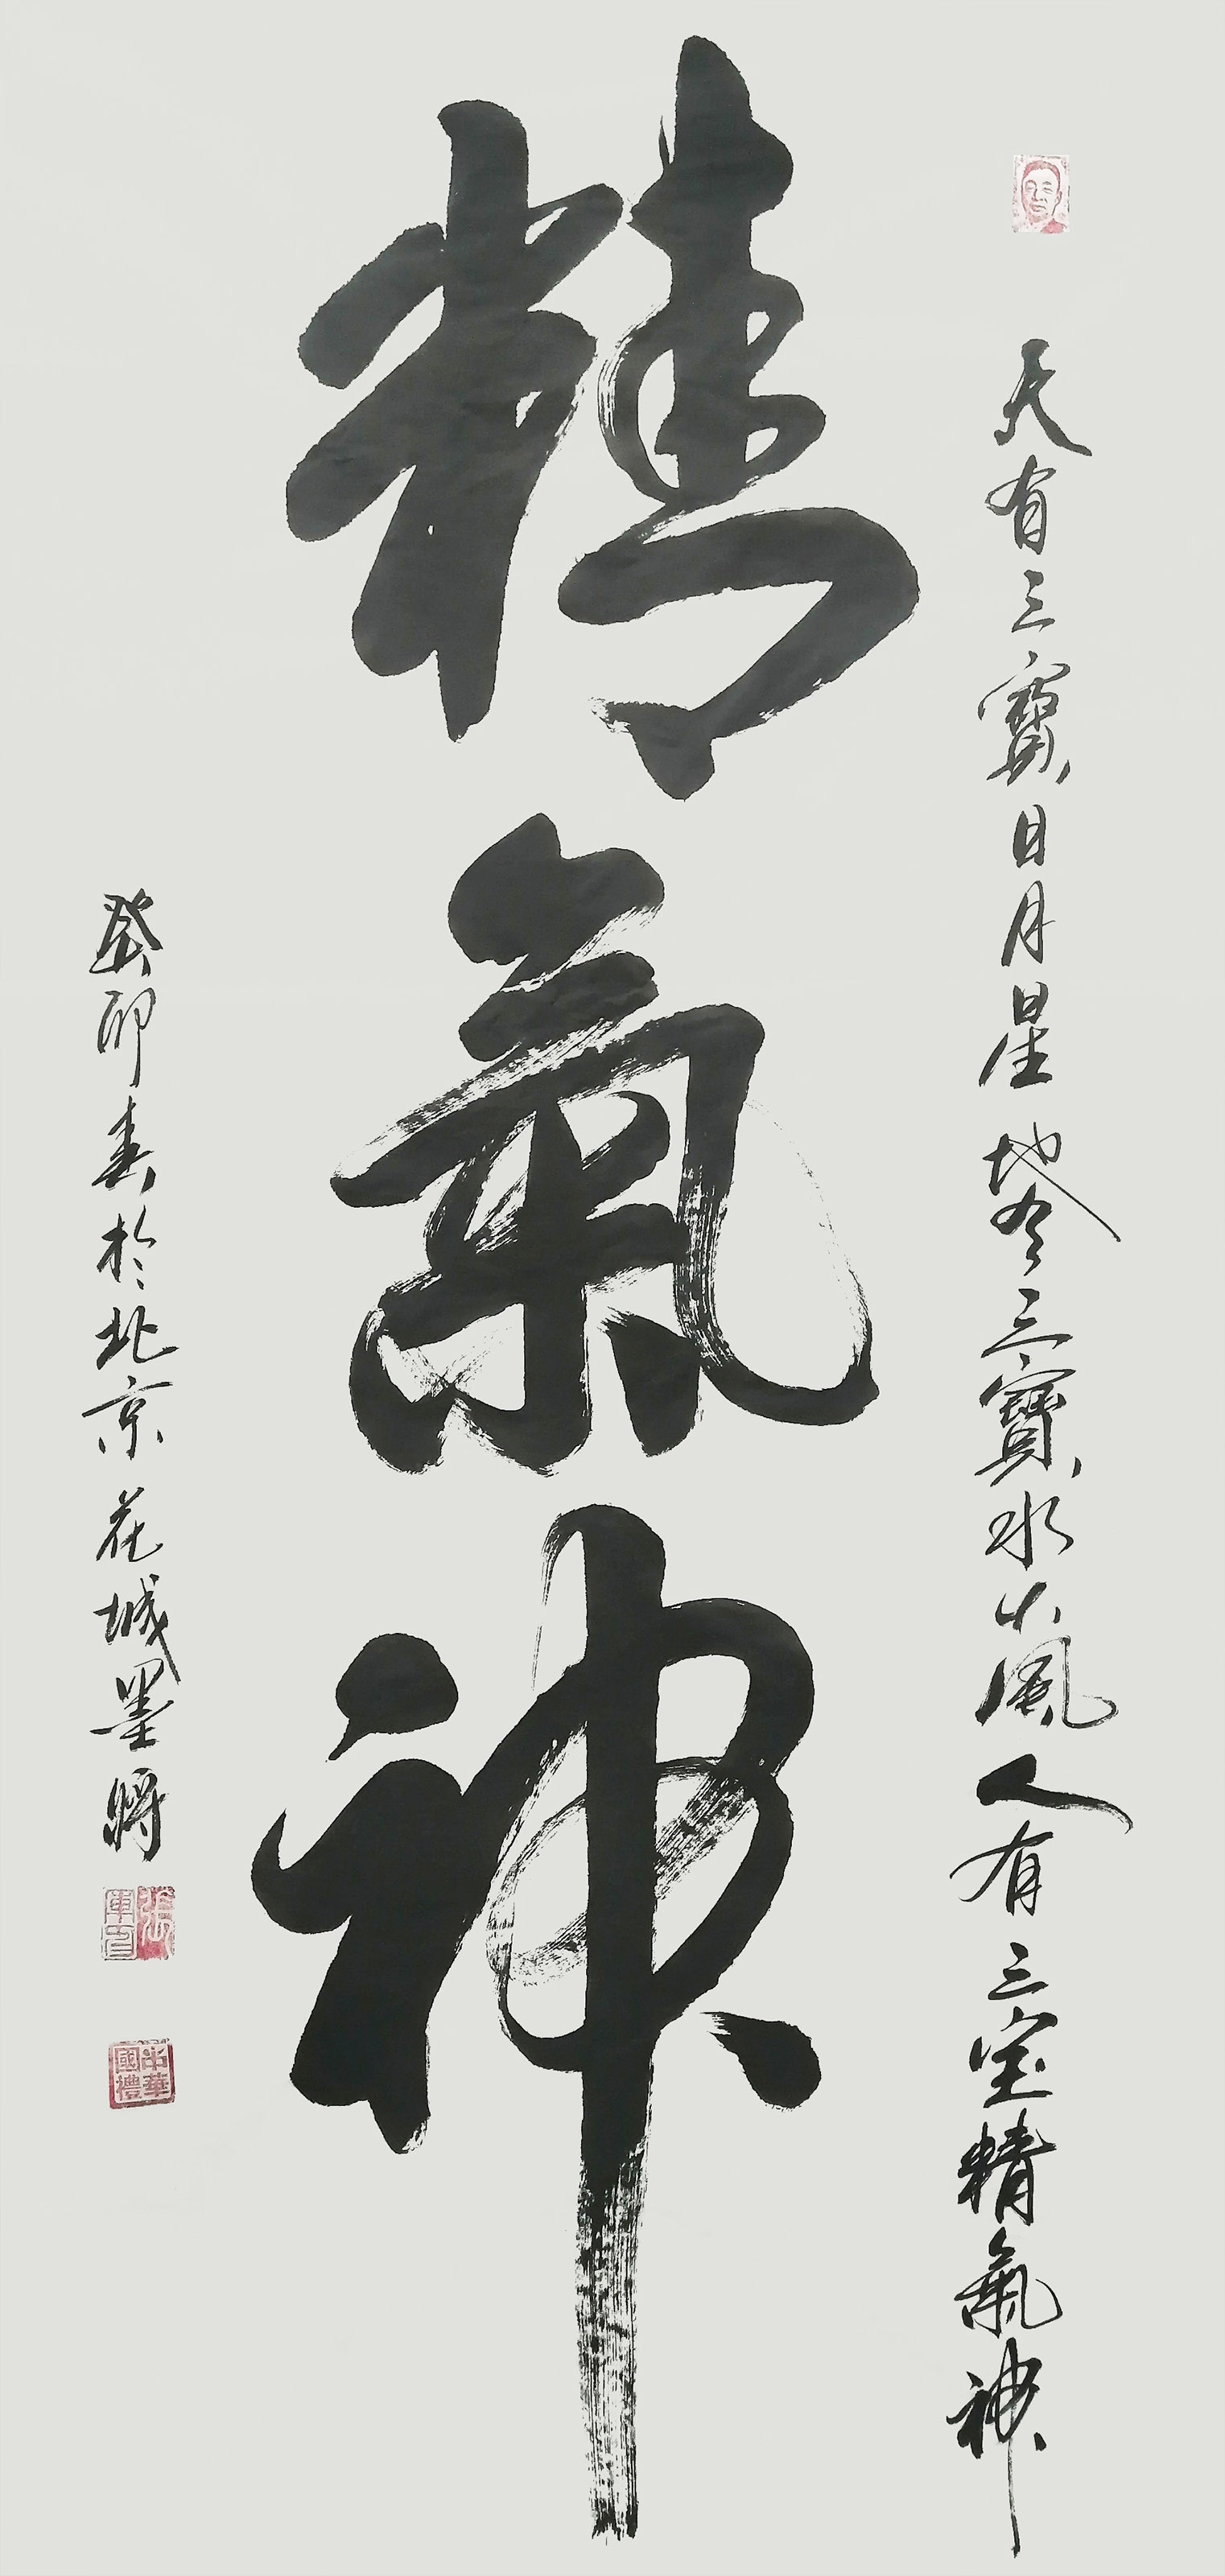 天有三寶日月星地有三寶水火風人有三宝精氣神
精氣神
癸卯春於北京花城墨將
張軍
中華國禮